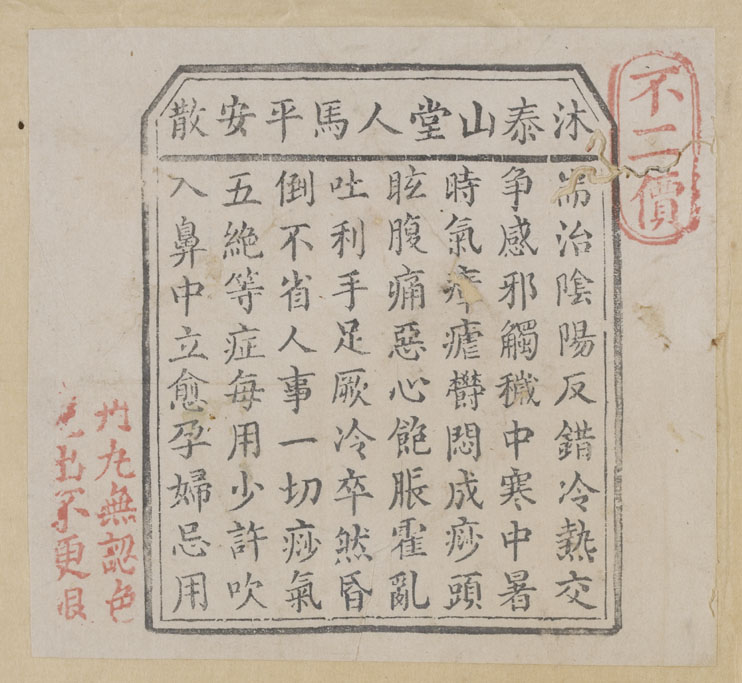 沐泰山堂人馬平安散
不二價
耑治陰陽反錯冷熱交
争感邪觸穢中寒中暑
時氣瘧鬱悶成痧頭
眩腹痛惡心飽脹霍亂
吐利手足厥冷卒然昏
倒不省人事一切痧氣
五絶等症每用少許吹
入鼻中立愈孕婦忌用
丸無認色
出不更